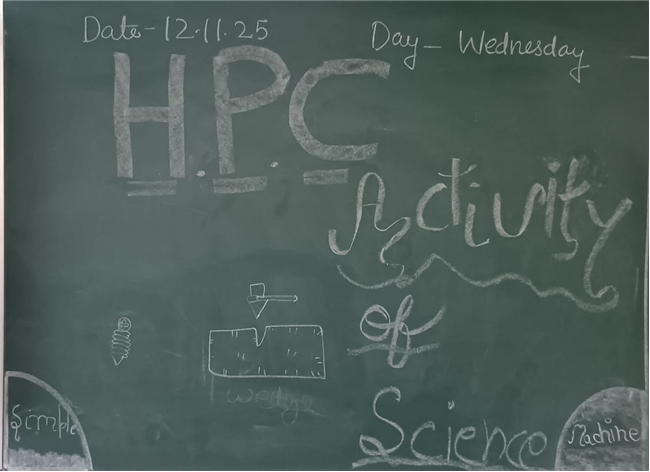 Date - 12.11.25
Day - Wednesday
H.P.C
Activity
of
Science
wedge
Simple
Machine